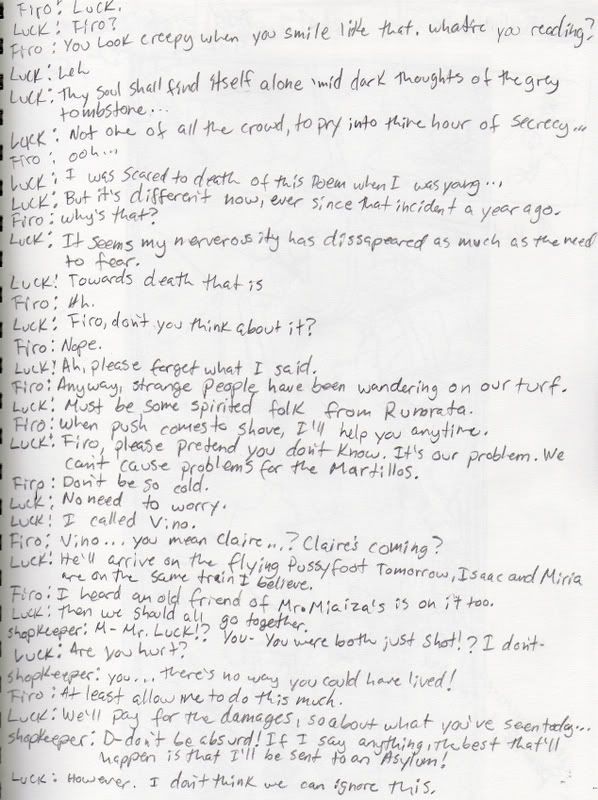 Firo: Luck.
Luck: Firo?
Firo: You look creepy when you smile like that. what're you reading?
Luck: heh
Luck: Thy soul shall find itself alone 'mid dark thoughts of the grey
tombstone...
Luck: Not one of all the crowd, to pry into thine hour of secrecy...
Firo: ooh...
Luck: I was scared to death of this Poem when I was young...
Luck: But it's different now, ever since that incident a year ago.
Firo: why's that?
Luck: It seems my nerverosity has dissapeared as much as the need
to fear.
Luck: Towards death that is
Firo: Ah.
Luck: Firo, don't you think about it?
Firo: Nope.
Luck: Ah, please forget what I said.
Firo: Anyway, strange people have been wandering on our turf.
Luck: Must be some spirited folk from Runorata.
Firo: when push comes to shove, I'll help you anytime.
Luck: Firo, please pretend you don't know. It's our problem. We
can't cause problems for the Martillos.
Firo: Don't be so cold.
Luck: No need to worry.
Luck: I called Vino.
Firo: Vino... you mean Claire...? Claire's coming?
Luck: He'll arrive on the flying Pussyfoot Tomorrow, Isaac and Miria
are on the same train I believe.
Firo: I heard an old friend of Mr. Miaiza's is on it too.
Luck: then we should all go together.
shopkeeper: M- Mr. Luck!? You- You were both just shot!? I don't-
Luck: Are you hurt?
shopkeeper: you... there's no way you could have lived!
Firo: At least allow me to do this much.
Luck: We'll pay for the damages, so about what you've seen today...
shopkeeper: D-don't be absurd! If I say anything, the best that'll
happen is that I'll be sent to an Asylum!
Luck: However. I don't think we can ignore this.